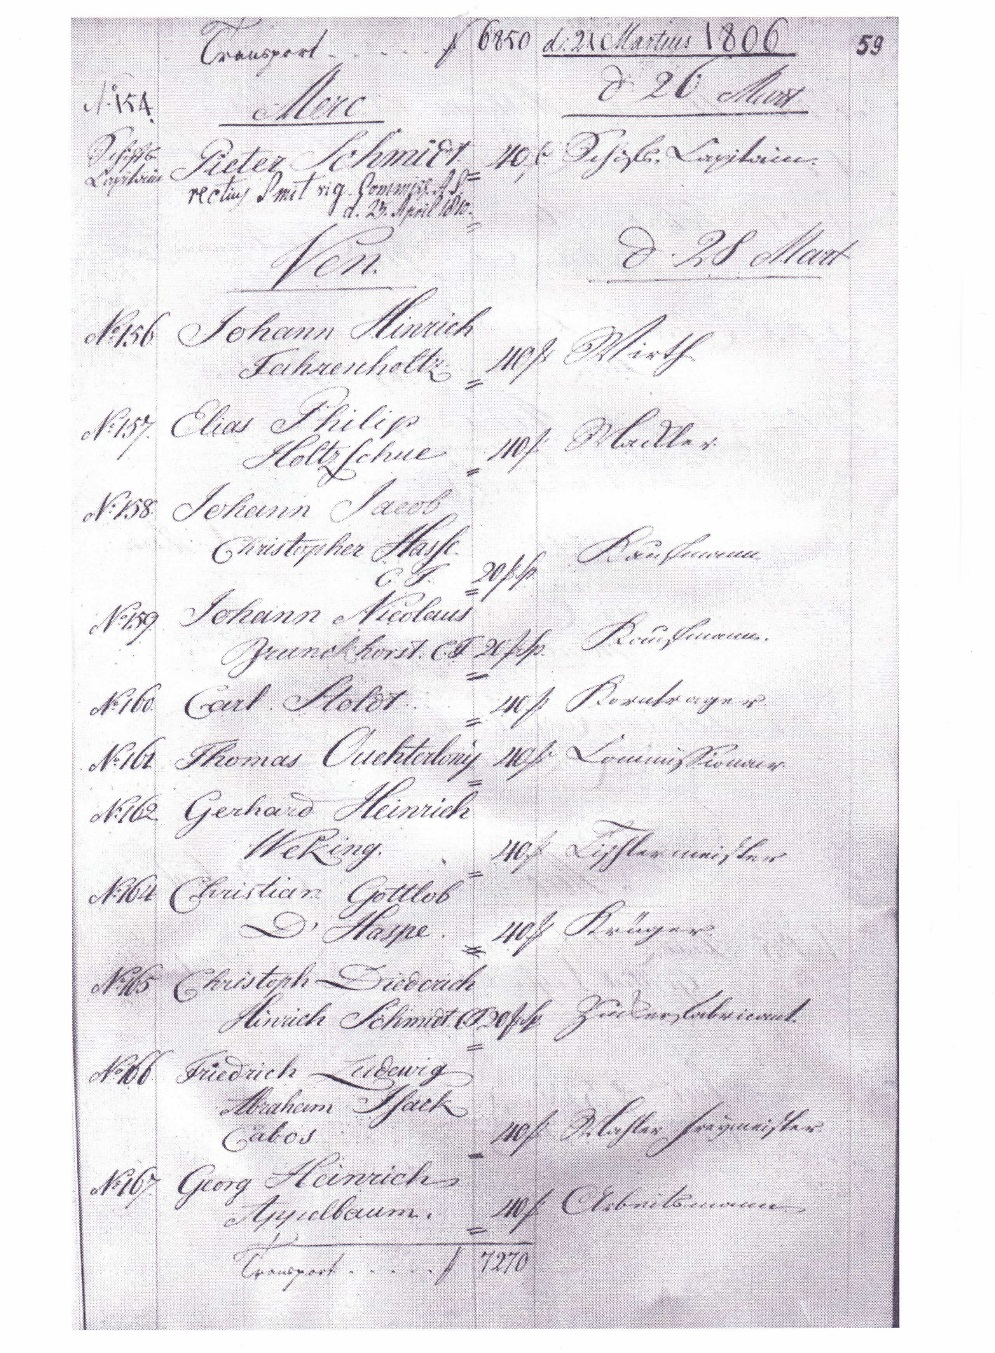 Transport . . . . . ƒ 6850 d. 21 Martius 1806 59
No 154. Merc d 26 Mart
Schiffs Capitain Pieter Schmidt 40 ƒ Schiffs. Capitain.
rectius Smit vig. Commiss. A. S.
d. 23. April 1810.
Ven. d 28 Mart
No 156 Johann Hinrich
Fahrenholtz 40 ƒ Wirth
No 157. Elias Philip
Holtzschue 40 ƒ Mackler
No 158 Johann Jacob
Christopher Hasse.
C. F. 20 ƒ Kaufmann
No 159 Johann Nicolaus
Brunckhorst. CF 20 ƒ Kaufmann.
No 160 Carl. Stoldt. 40 ƒ Korntrager
No 161 Thomas Ouchterlony 40 ƒ Commissionair
No 162 Gerhard Heinrich
Weking. 40 ƒ Tischlermeister
No 164 Christian Gottlob
D' Haspe. 40 ƒ Krüger
No 165 Christoph Diederich
Hinrich Schmidt. CF 20 ƒ Zuckerfabricant.
No 166 Friedrich Ludewig
Abraham Isack
Cabos 40 ƒ freymeister
No 167 Georg Heinrich
Appelbaum. 40 ƒ Arbeitsmann.
Transport . . . . . ƒ 7270